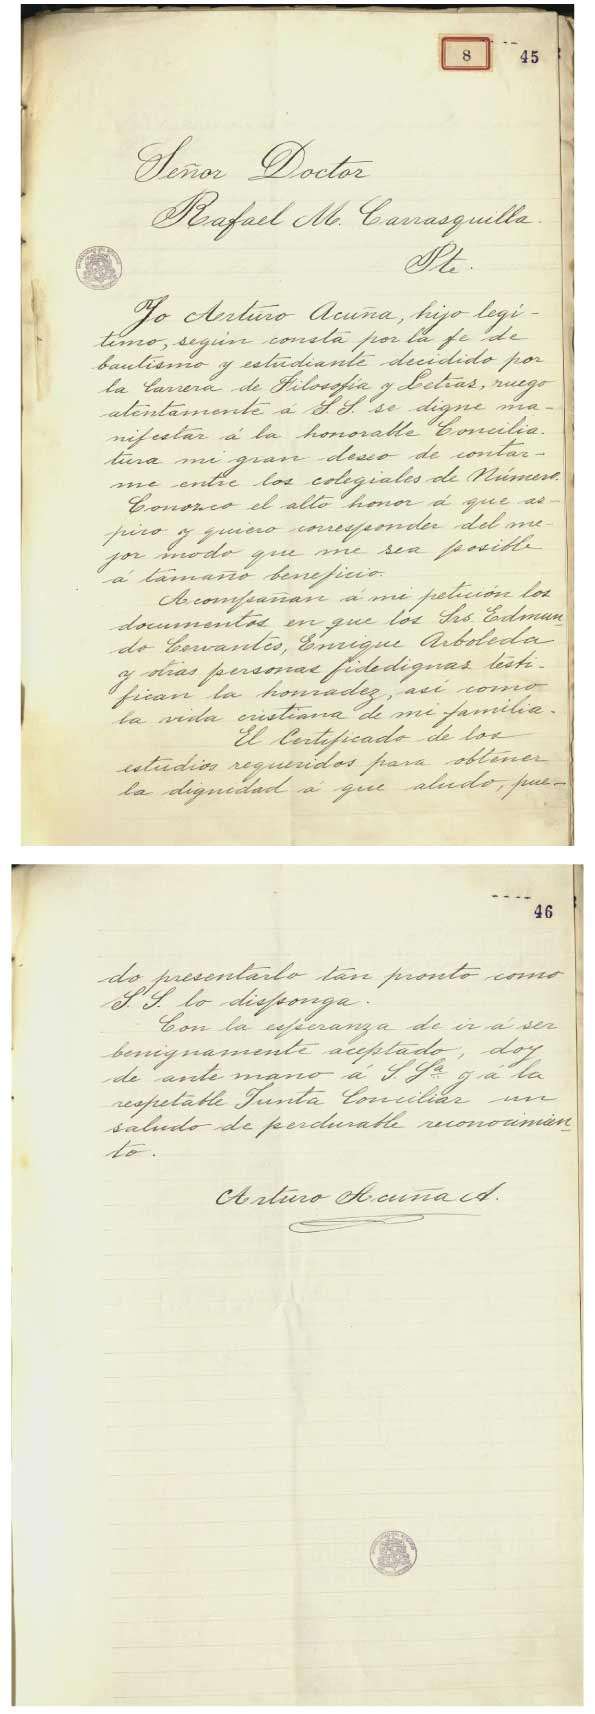 8
45
Señor Doctor
Rafael M. Carrasquilla.
Pte.
Yo Arturo Acuña, hijo legí-
timo, según consta por la fe de
bautismo y estudiante decidido por
la Carrera de Filosofía y Letras, ruego
atentamente á S.S. se digne ma-
nifestar á la honorable Concilia-
tura mi gran deseo de contar-
me entre los colegiales de Número.
Conozco el alto honor á que as-
piro y quiero corresponder del me-
jor modo que me sea posible
á tamaño beneficio.
Acompañan á mi petición los
documentos en que los Srs. Edmun-
do Cervantes, Enrique Arboleda
y otras personas fidedignas testi-
fican la honradez, así como
la vida cristiana de mi familia.
El Certificado de los
estudios requeridos para obtener
la dignidad á que aludo, pue-
46
do presentarlo tan pronto como
S.S. lo disponga.
Con la esperanza de ir á ser
benignamente aceptado, doy
de ante mano á S. Sa. y á la
respetable Junta Conciliar un
saludo de perdurable reconocimien-
to.
Arturo Acuña A.